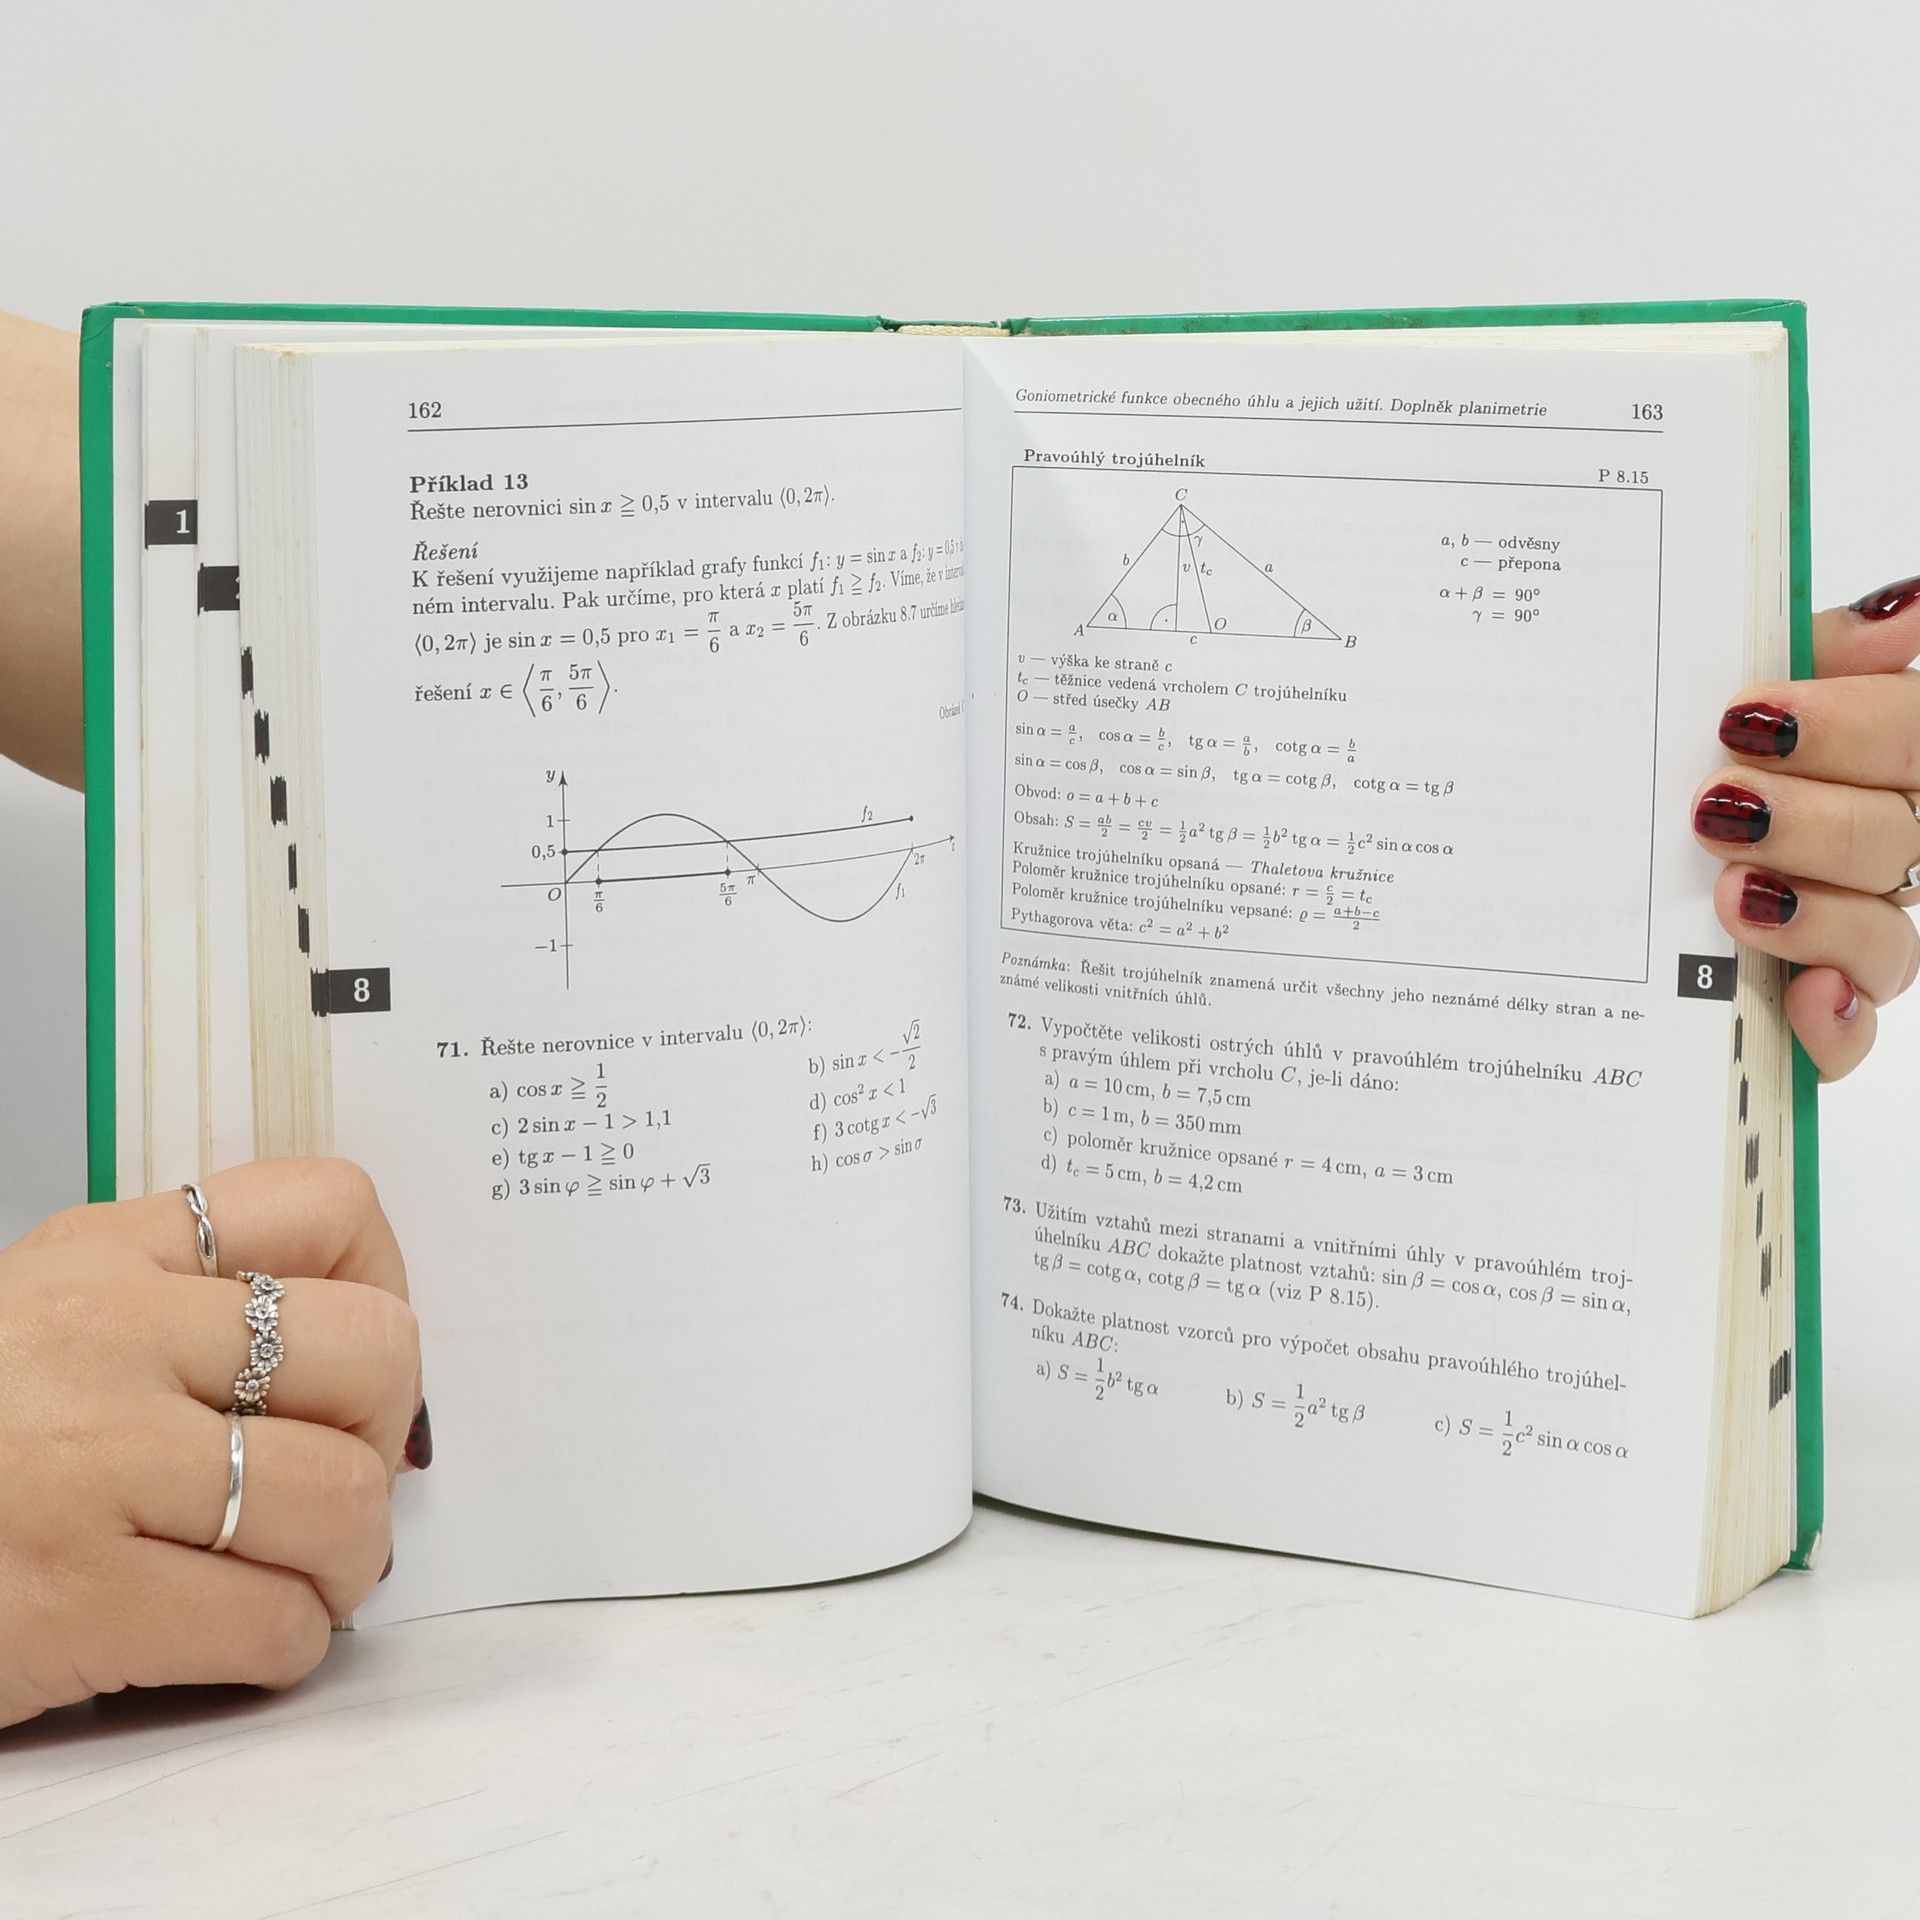 162
Příklad 13
Řešte nerovnici sin x ≧ 0,5 v intervalu ⟨0, 2π⟩.
Řešení
K řešení využijeme například grafy funkcí f₁: y = sin x a f₂: y = 0,5 v
ném intervalu. Pak určíme, pro která x platí f₁ ≧ f₂. Víme, že v
⟨0, 2π⟩ je sin x = 0,5 pro x₁ = π/6 a x₂ = 5π/6. Z obrázku 8.7 určíme
řešení x ∈ ⟨π/6, 5π/6⟩.
y
1
f₂
0,5
2π
O
π/6
5π/6
π
f₁
−1
1
8
71. Řešte nerovnice v intervalu ⟨0, 2π⟩:
a) cos x ≧ 1/2
b) sin x < −√2/2
c) 2 sin x − 1 > 1,1
d) cos² x < 1
e) tg x − 1 ≧ 0
f) 3 cotg x < −√3
g) 3 sin φ ≧ sin φ + √3
h) cos σ > sin σ
Goniometrické funkce obecného úhlu a jejich užití. Doplněk planimetrie 163
Pravoúhlý trojúhelník P 8.15
C
γ
b
v
t_c
a
A
α
c
O
β
B
a, b — odvěsny
c — přepona
α + β = 90°
γ = 90°
v — výška ke straně c
t_c — těžnice vedená vrcholem C trojúhelníku
O — střed úsečky AB
sin α = a/c, cos α = b/c, tg α = a/b, cotg α = b/a
sin α = cos β, cos α = sin β, tg α = cotg β, cotg α = tg β
Obvod: o = a + b + c
Obsah: S = ab/2 = cv/2 = 1/2 a² tg β = 1/2 b² tg α = 1/2 c² sin α cos α
Kružnice trojúhelníku opsaná — Thaletova kružnice
Poloměr kružnice trojúhelníku opsané: r = c/2 = t_c
Poloměr kružnice trojúhelníku vepsané: ϱ = (a+b−c)/2
Pythagorova věta: c² = a² + b²
Poznámka: Řešit trojúhelník znamená určit všechny jeho neznámé délky stran a ne-
známé velikosti vnitřních úhlů.
8
72. Vypočtěte velikosti ostrých úhlů v pravoúhlém trojúhelníku ABC
s pravým úhlem při vrcholu C, je-li dáno:
a) a = 10 cm, b = 7,5 cm
b) c = 1 m, b = 350 mm
c) poloměr kružnice opsané r = 4 cm, a = 3 cm
d) t_c = 5 cm, b = 4,2 cm
73. Užitím vztahů mezi stranami a vnitřními úhly v pravoúhlém troj-
úhelníku ABC dokažte platnost vztahů: sin β = cos α, cos β = sin α,
tg β = cotg α, cotg β = tg α (viz P 8.15).
74. Dokažte platnost vzorců pro výpočet obsahu pravoúhlého trojúhel-
níku ABC:
a) S = 1/2 b² tg α b) S = 1/2 a² tg β c) S = 1/2 c² sin α cos α